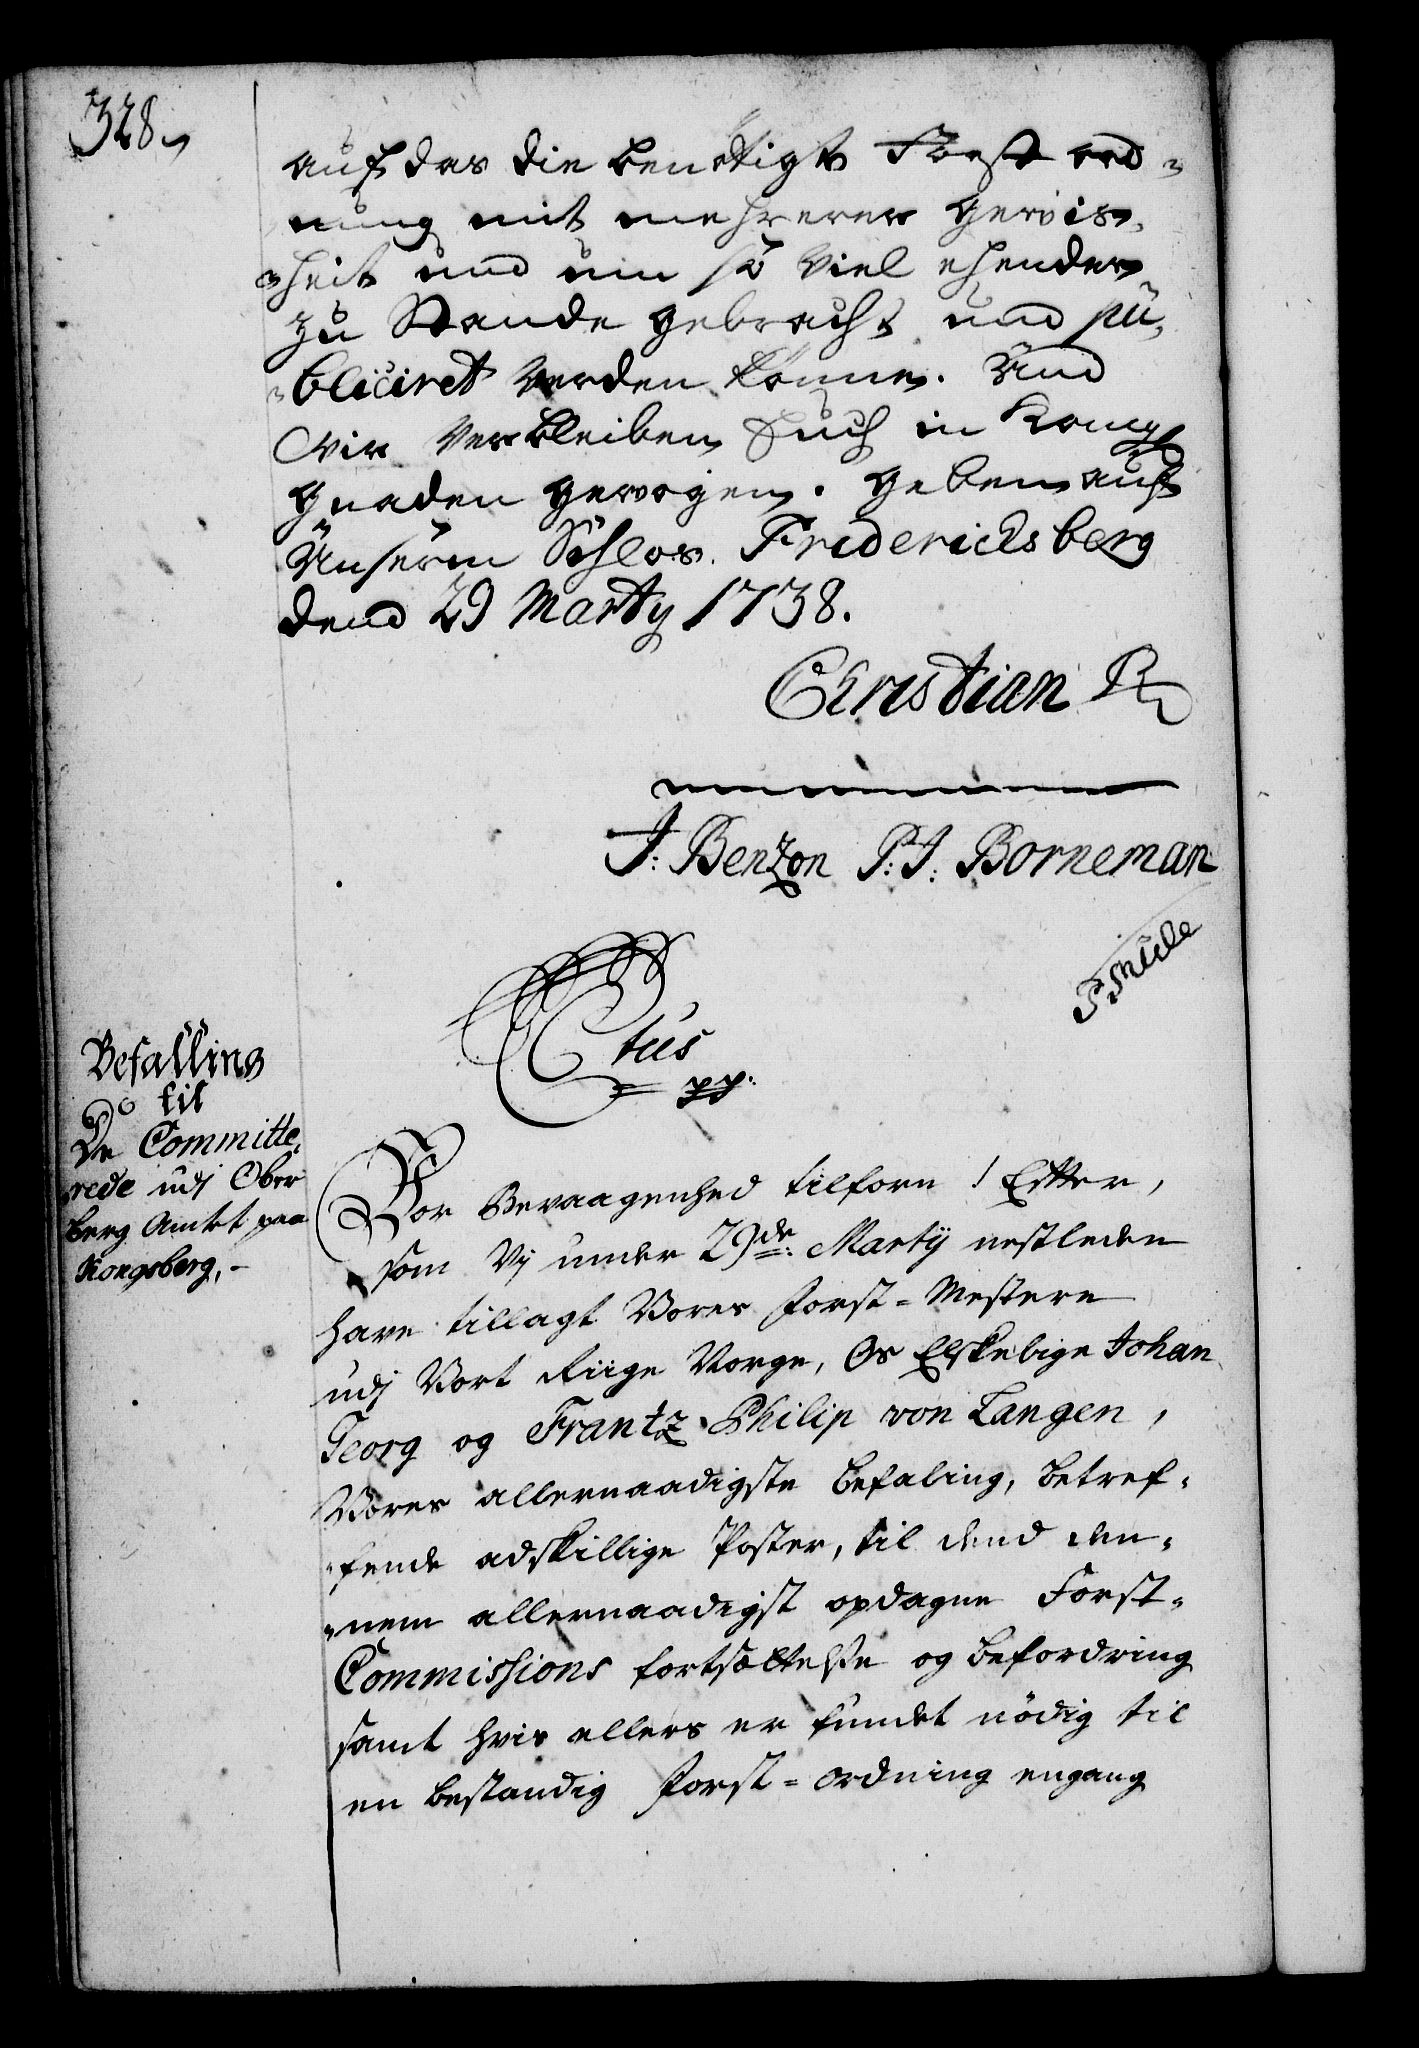 328.
auf das die benötigte Forst ord=
nung mit mehrerer gewis=
=heit und um so viel ehender
zu Stande gebracht und pu=
=bliciret werden könne. Und
Wir verbleiben Euch in Königl
gnaden gewogen. geben auf
Unserm Schlos. Fridericksberg
dend 29 Marty 1738.
Christian R
J: Benzon P: J: Borneman
P. Mule
Ctus
pp:
Befalling
til
De Committe,
rede udj Ober
berg Amtet paa
Kongsberg,
Vor Bevaagenhed tilforn! Efter,
som Vj under 29de: Martij nestleden
have tillagt Vores Forst=Mestere
udj Vort Riige Norge, Os Elskelige Johan
Georg og Frantz Philip von Langen,
Vores allernaadigste befaling, betref=
=fende adskillige Poster, til dend den=
=nem allernaadigst opdagne Forst=
Commissions fortsættelse og befordring
samt hvis ellers er fundet nödig til
en bestandig Forst=ordning engang